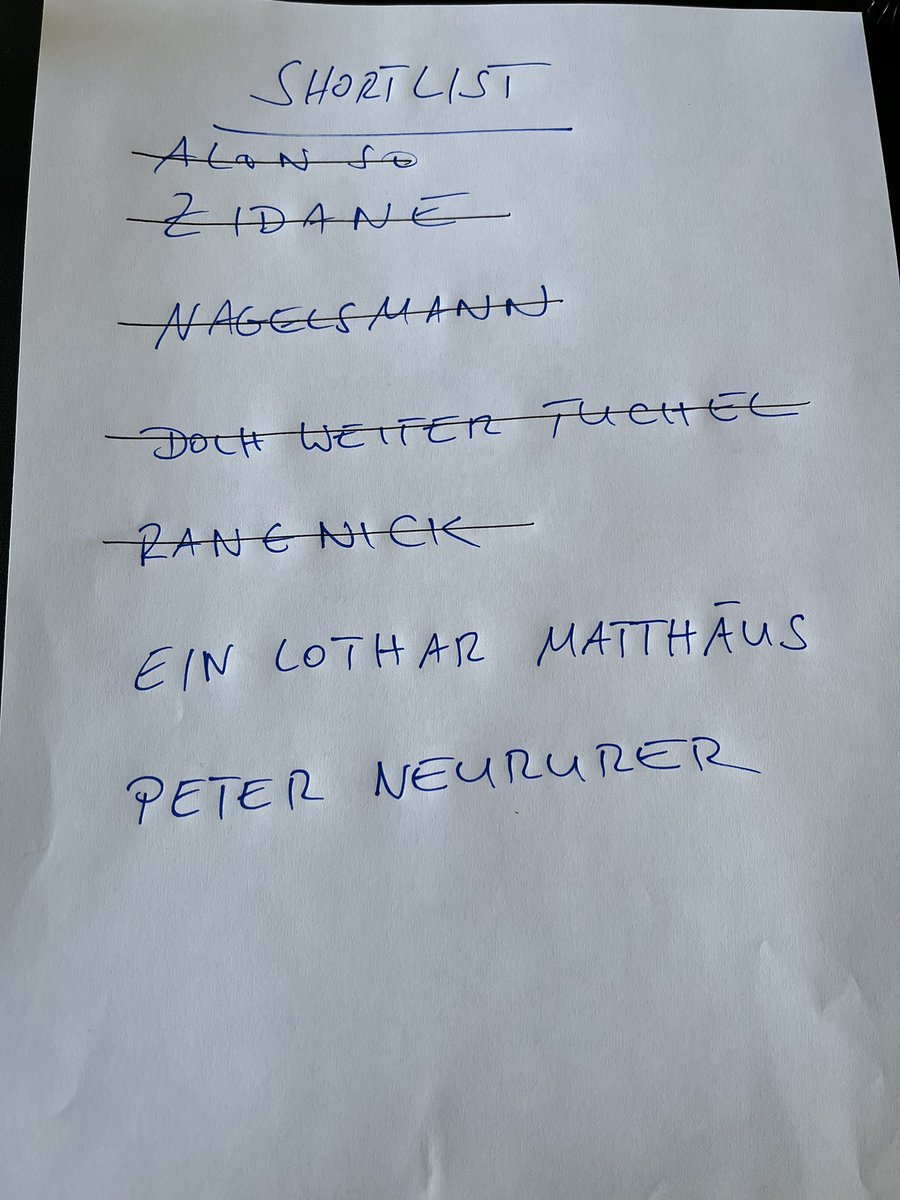 SHORTLIST
ALONSO
ZIDANE
NAGELSMANN
DOCH WEITER TUCHEL
RANGNICK
EIN LOTHAR MATTHÄUS
PETER NEURURER